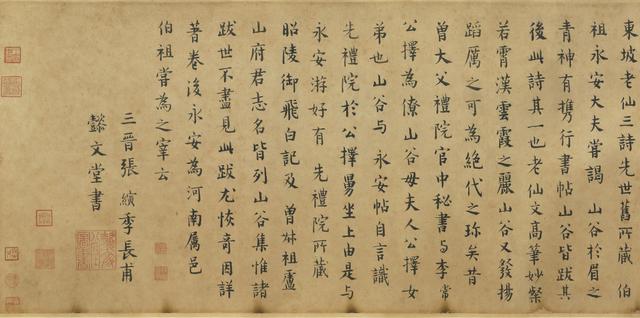 東坡老仙三詩先世舊所藏 伯
祖永安大夫嘗謁 山谷於眉之
青神有携行書帖山谷皆跋其
後此詩其一也老仙文高筆妙粲
若霄漢雲霞之麗山谷又發揚
蹈厲之可為絶代之珎矣昔
曾大父禮院官中秘書与李常
公擇為僚山谷母夫人公擇女
弟也山谷与 永安帖自言識
先禮院於公擇舅坐上由是与
永安游好有 先禮院所藏
昭陵御飛白記及 曾叔祖盧
山府君志名皆列山谷集惟諸
跋世不盡見此跋尤恢奇因詳
著卷後永安為河南属邑
伯祖嘗為之宰云
三晉張縯季長甫
懿文堂書